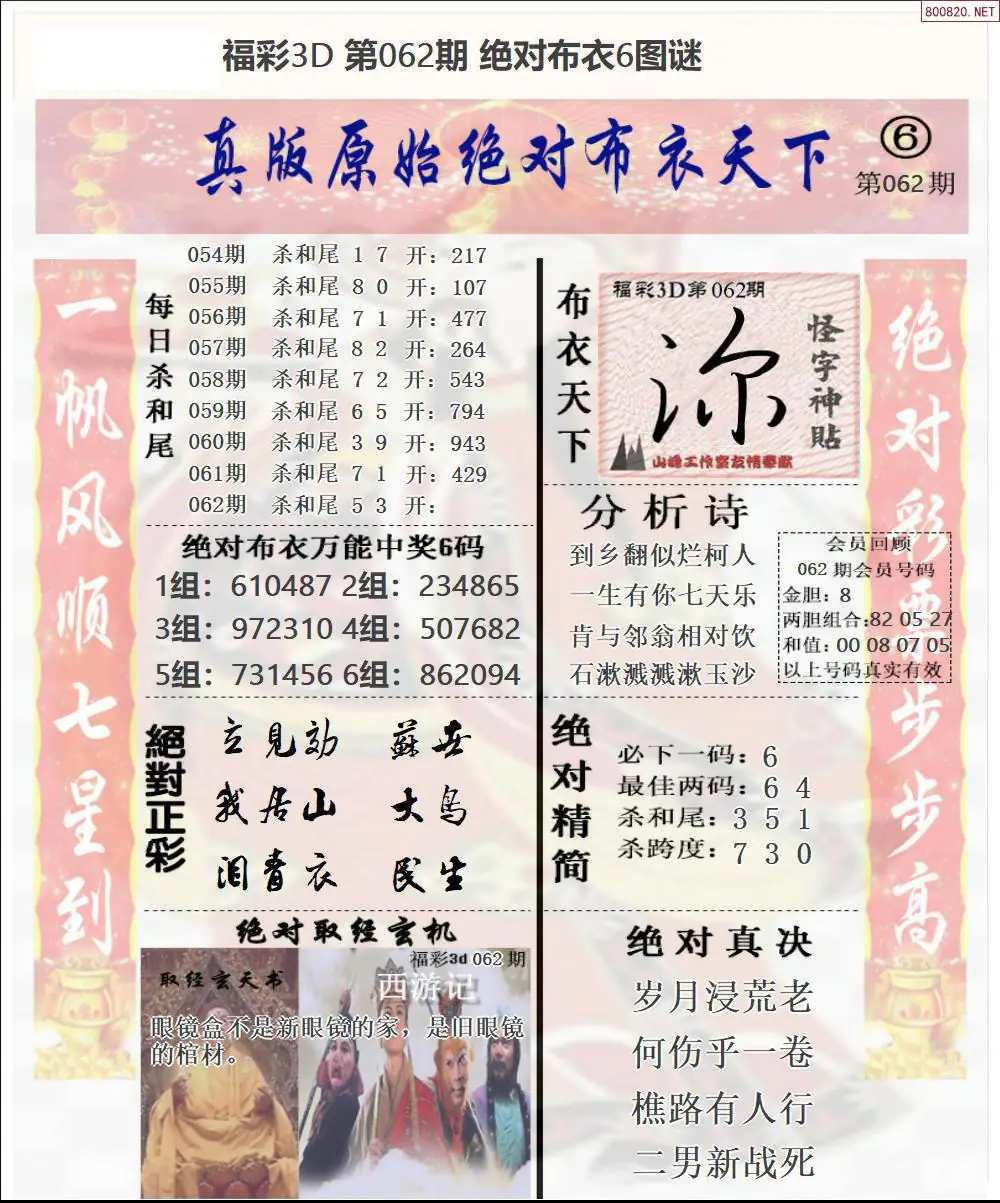 800820.NET
福彩3D 第062期 绝对布衣6图谜
真版原始绝对布衣天下
6
第062期
一帆风顺七星到
每日杀和尾
054期 杀和尾 1 7 开: 217
055期 杀和尾 8 0 开: 107
056期 杀和尾 7 1 开: 477
057期 杀和尾 8 2 开: 264
058期 杀和尾 7 2 开: 543
059期 杀和尾 6 5 开: 794
060期 杀和尾 3 9 开: 943
061期 杀和尾 7 1 开: 429
062期 杀和尾 5 3 开:
绝对布衣万能中奖6码
1组: 610487 2组: 234865
3组: 972310 4组: 507682
5组: 731456 6组: 862094
絕對正彩
立見効 蘇世
我居山 大鸟
泪青衣 民生
绝对取经玄机
福彩3d 062期
取经玄天书
西游记
眼镜盒不是新眼镜的家，是旧眼镜
的棺材。
布衣天下
福彩3D第062期
怪字神贴
山峰工作室友情奉献
分析诗
到乡翻似烂柯人
一生有你七天乐
肯与邻翁相对饮
石漱溅溅漱玉沙
会员回顾
062期会员号码
金胆: 8
两胆组合:82 05 27
和值: 00 08 07 05
以上号码真实有效
绝对精简
必下一码: 6
最佳两码: 6 4
杀和尾: 3 5 1
杀跨度: 7 3 0
绝对真决
岁月浸荒老
何伤乎一卷
樵路有人行
二男新战死
绝对彩票步步高